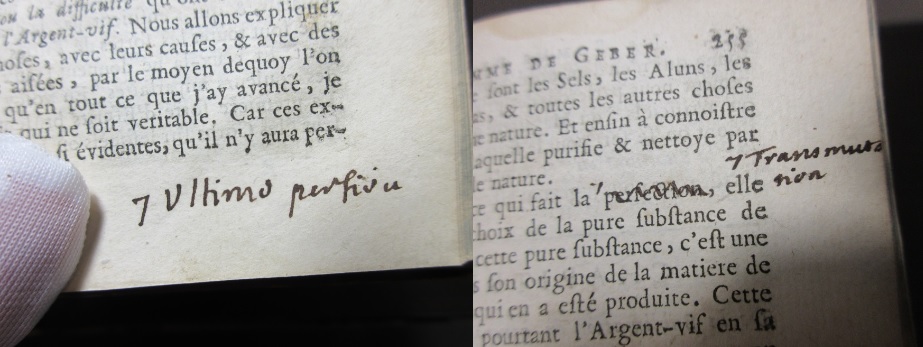 ou la difficulté qu'on
l'Argent-vif. Nous allons expliquer
choses, avec leurs causes, & avec des
aisées, par le moyen dequoy l'on
qu'en tout ce que j'ay avancé, je
qui ne soit veritable. Car ces ex-
si évidentes, qu'il n'y aura per-
7 Ultimo
MME DE GEBER. 255
font les Sels, les Aluns, les
as, & toutes les autres choses
nature. Et enfin à connoistre
aquelle purifie & nettoye par
le nature.
7 Transmuta
sion
ce qui fait la perfection, elle
choix de la pure substance de
cette pure substance, c'est une
son origine de la matiere de
qui en a esté produite. Cette
pourtant l'Argent-vif en sa